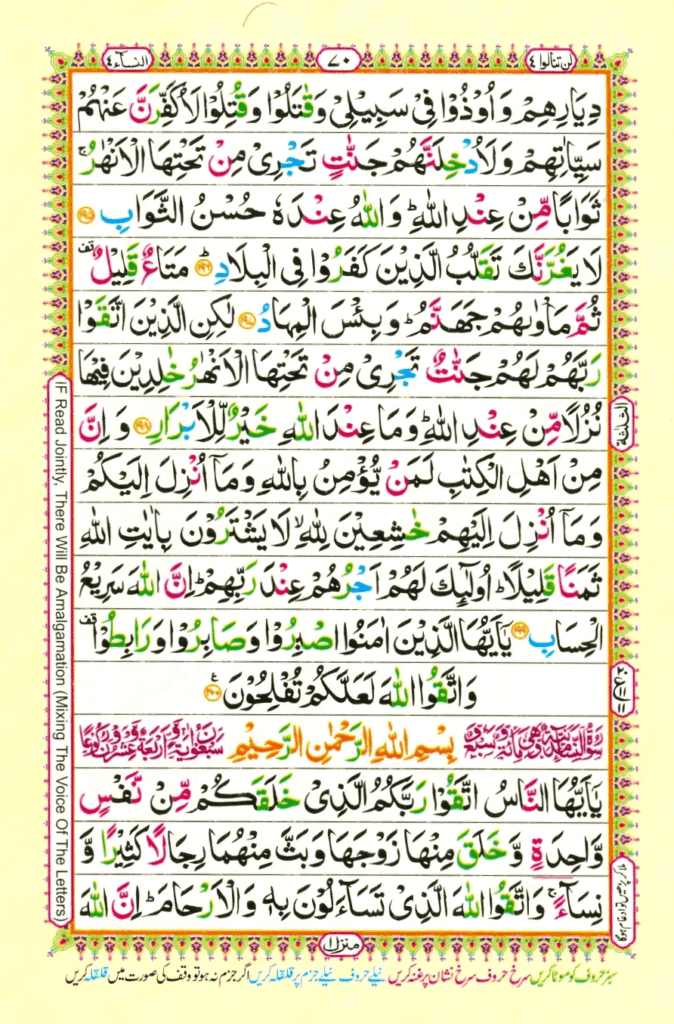 لن تنالوا ٤
٧٠
النسآء ٤
دِيَارِهِمْ وَ اُوْذُوْا فِیْ سَبِيْلِیْ وَقٰتَلُوْا وَقُتِلُوْا لَاُكَفِّرَنَّ عَنْهُمْ
سَيِّاٰتِهِمْ وَلَاُدْخِلَنَّهُمْ جَنّٰتٍ تَجْرِیْ مِنْ تَحْتِهَا الْاَنْهٰرُ ۚ
ثَوَابًا مِّنْ عِنْدِ اللّٰهِ ؕ وَ اللّٰهُ عِنْدَهٗ حُسْنُ الثَّوَابِ ﴿۱۹۵﴾
لَا يَغُرَّنَّكَ تَقَلُّبُ الَّذِيْنَ كَفَرُوْا فِی الْبِلَادِ ﴿۱۹۶﴾ ؕ مَتَاعٌ قَلِيْلٌ قف
ثُمَّ مَاْوٰىهُمْ جَهَنَّمُ ؕ وَ بِئْسَ الْمِهَادُ ﴿۱۹۷﴾ لٰكِنِ الَّذِيْنَ اتَّقَوْا
رَبَّهُمْ لَهُمْ جَنّٰتٌ تَجْرِیْ مِنْ تَحْتِهَا الْاَنْهٰرُ خٰلِدِيْنَ فِيْهَا
نُزُلًا مِّنْ عِنْدِ اللّٰهِ ؕ وَمَا عِنْدَ اللّٰهِ خَيْرٌ لِّلْاَبْرَارِ ﴿۱۹۸﴾ وَ اِنَّ
مِنْ اَهْلِ الْكِتٰبِ لَمَنْ يُّؤْمِنُ بِاللّٰهِ وَ مَاۤ اُنْزِلَ اِلَيْكُمْ
وَمَاۤ اُنْزِلَ اِلَيْهِمْ خٰشِعِيْنَ لِلّٰهِ ۙ لَا يَشْتَرُوْنَ بِاٰيٰتِ اللّٰهِ
ثَمَنًا قَلِيْلًا ؕ اُولٰٓئِكَ لَهُمْ اَجْرُهُمْ عِنْدَ رَبِّهِمْ ؕ اِنَّ اللّٰهَ سَرِيْعُ
الْحِسَابِ ﴿۱۹۹﴾ يٰۤاَيُّهَا الَّذِيْنَ اٰمَنُوا اصْبِرُوْا وَصَابِرُوْا وَرَابِطُوْا قف
وَ اتَّقُوا اللّٰهَ لَعَلَّكُمْ تُفْلِحُوْنَ ﴿۲۰۰﴾ ۧ
بِسْمِ اللّٰهِ الرَّحْمٰنِ الرَّحِيْمِ
يٰۤاَيُّهَا النَّاسُ اتَّقُوْا رَبَّكُمُ الَّذِیْ خَلَقَكُمْ مِّنْ نَّفْسٍ
وَّاحِدَةٍ وَّ خَلَقَ مِنْهَا زَوْجَهَا وَ بَثَّ مِنْهُمَا رِجَالًا كَثِيْرًا وَّ
نِسَآءً ۚ وَ اتَّقُوا اللّٰهَ الَّذِیْ تَسَآءَلُوْنَ بِهٖ وَ الْاَرْحَامَ ؕ اِنَّ اللّٰهَ
منزل ١
سبز حروف کو موٹا کریں سرخ حروف سرخ نشان پر غنہ کریں نیلے حروف نیلے جزم پر قلقلہ کریں اگر جزم نہ ہو تو وقف کی صورت میں قلقلہ کریں
IF Read Jointly, There Will Be Amalgamation (Mixing The Voice Of The Letters)
ملا کر پڑھیں تو ادغام ہوگا